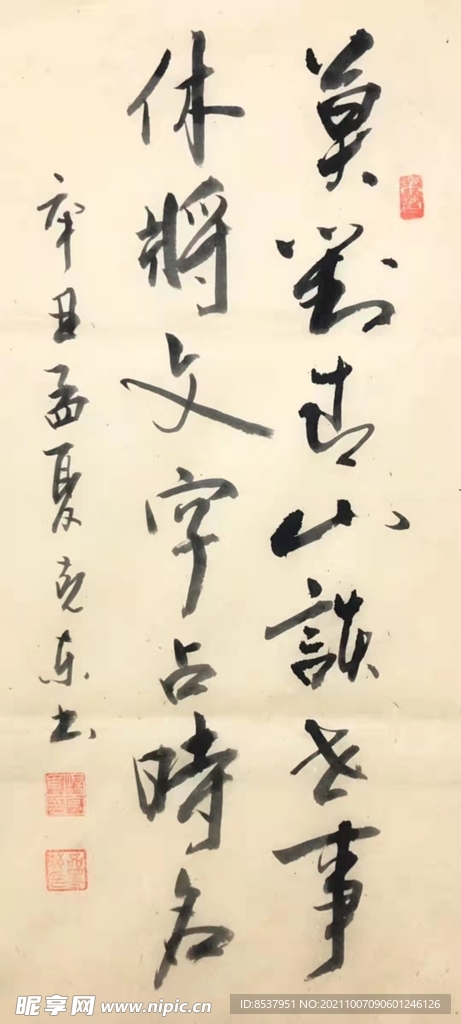 莫對青山談世事
休將文字占時名
辛丑孟夏克東书
昵享网 www.nipic.cn
ID:8537951 NO:20211007090601246126